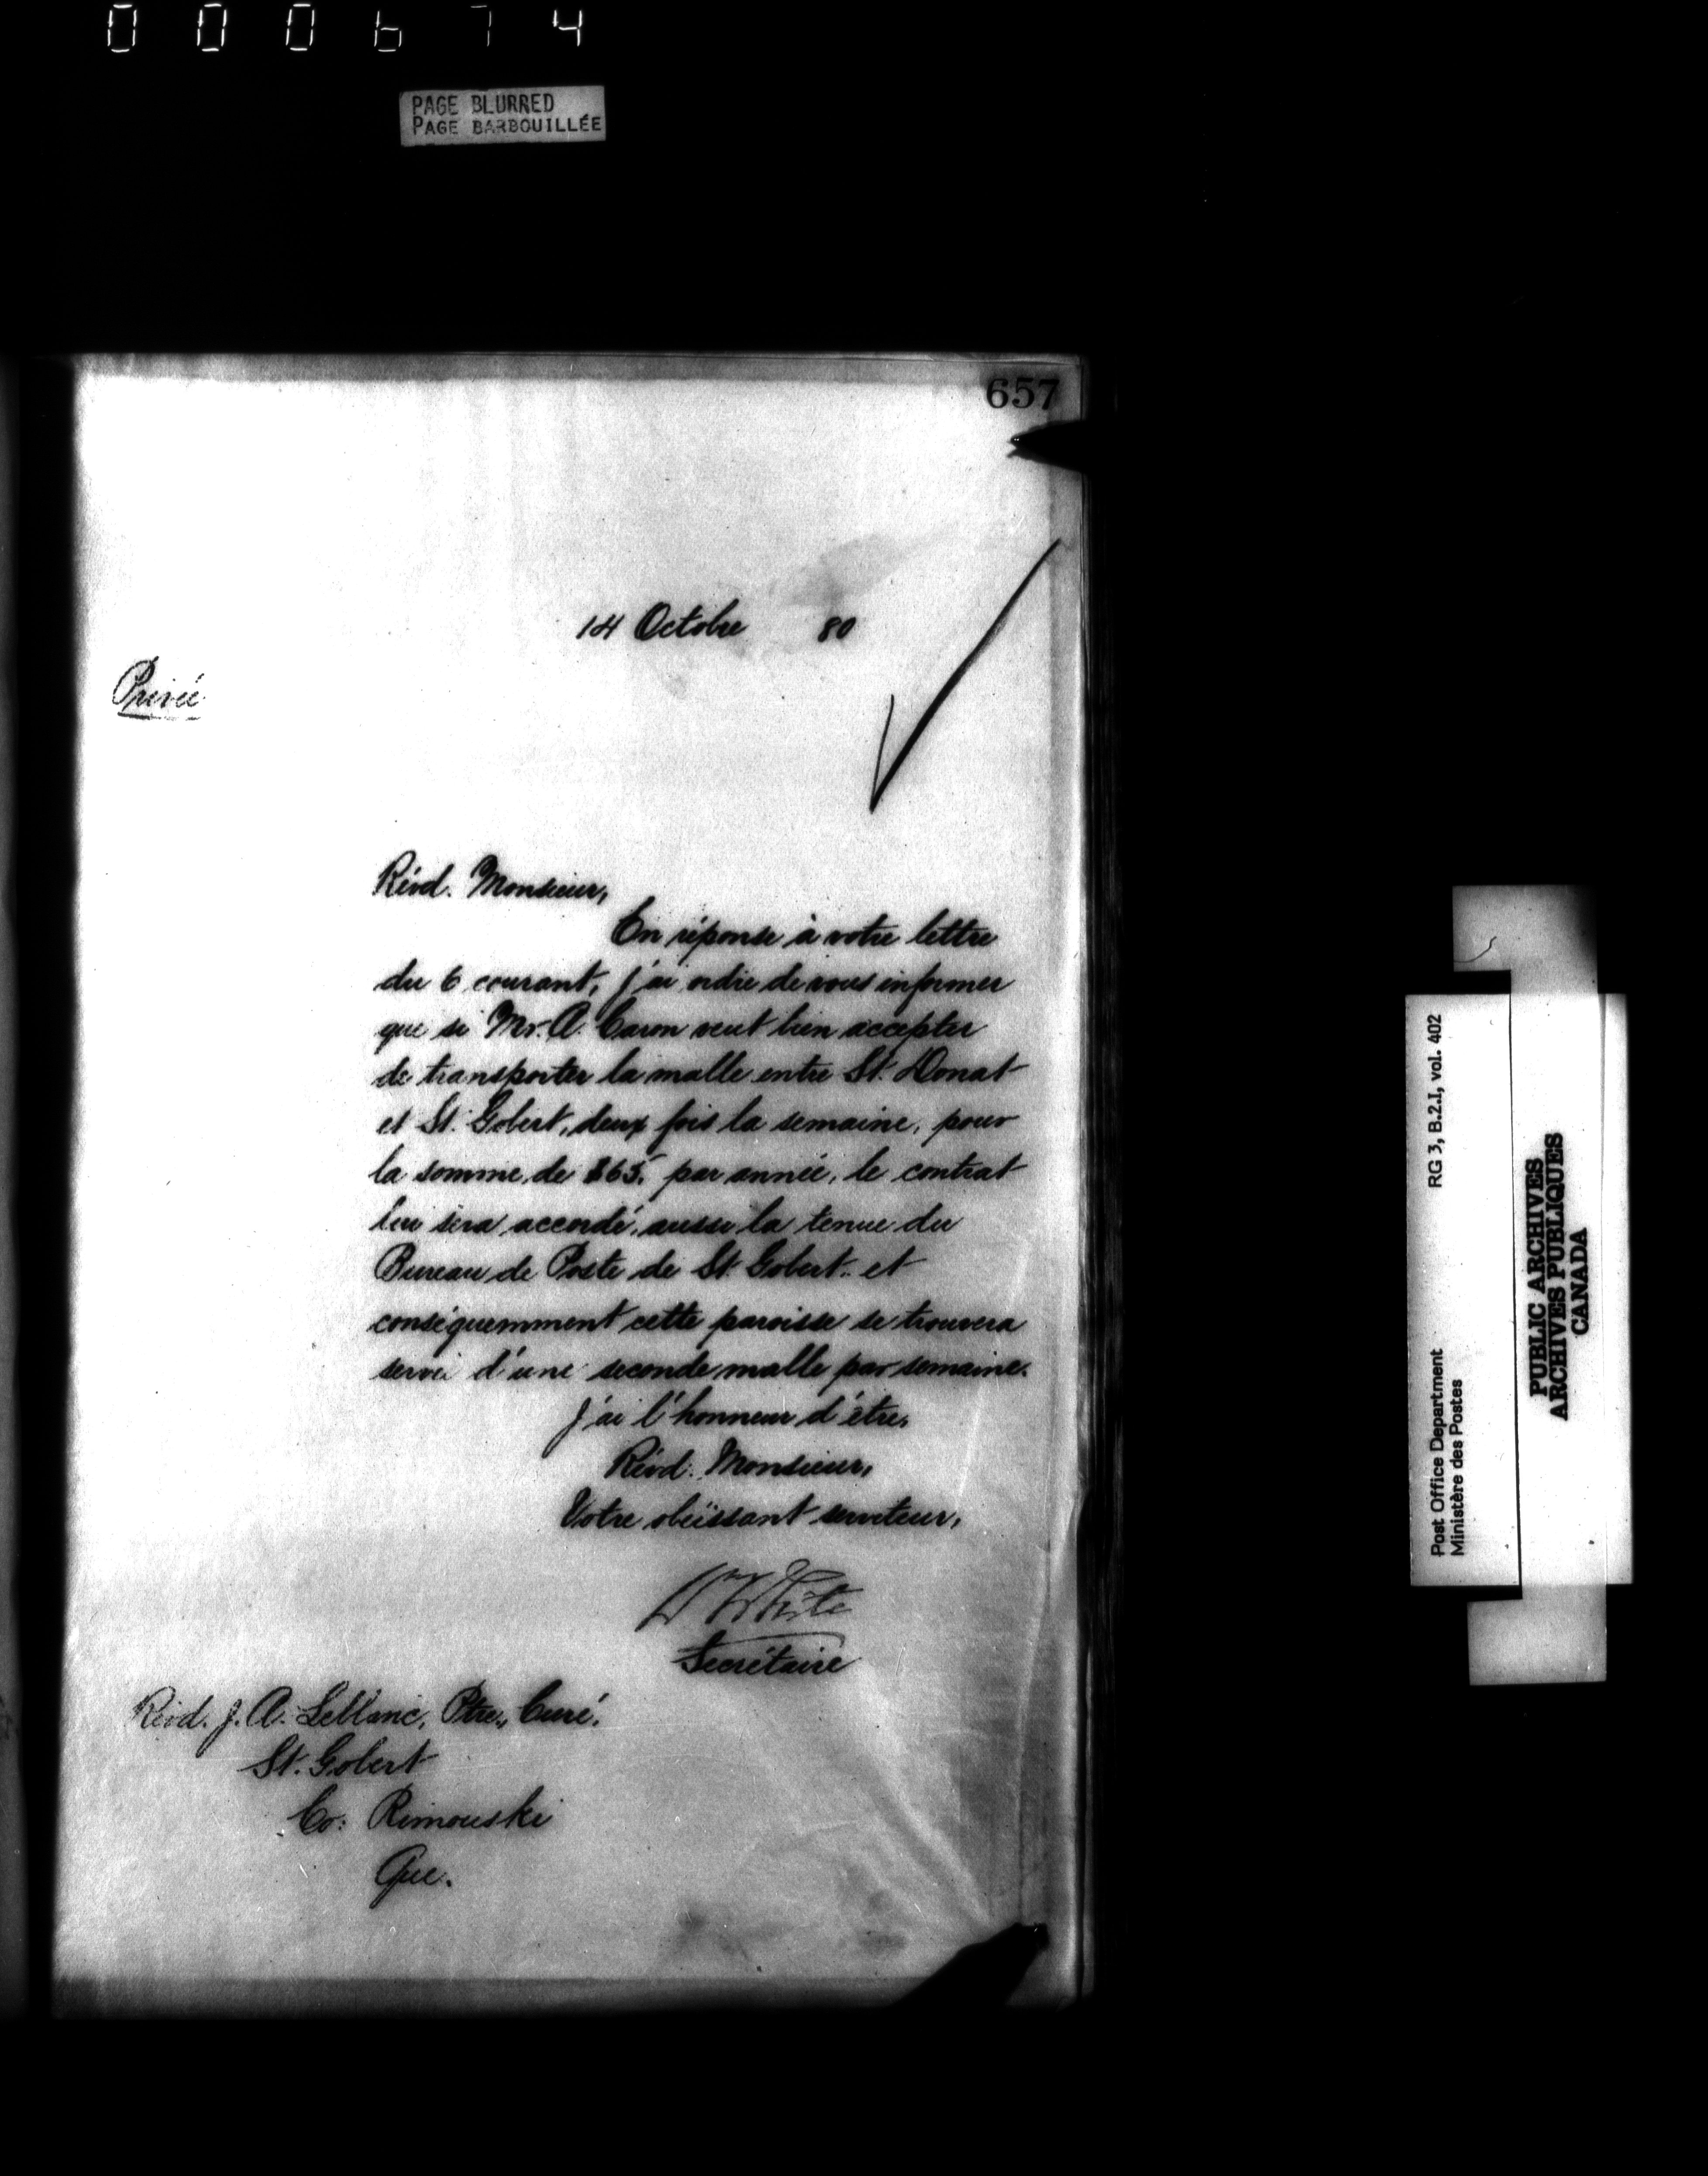 000674
PAGE BLURRED
PAGE BARBOUILLÉE
657
14 Octobre 80
Privée
Révd. Monsieur,
En réponse à votre lettre
du 6 courant, j'ai ordre de vous informer
que si Mr. A. Caron veut bien accepter
de transporter la malle entre St. Donat
et St. Gobert, deux fois la semaine, pour
la somme de $65. par année, le contrat
lui sera accordé, aussi la tenue du
Bureau de Poste de St. Gobert et
conséquemment cette paroisse se trouvera
servie d'une seconde malle par semaine.
J'ai l'honneur d'être,
Révd. Monsieur,
Votre obéissant serviteur,
White
Secrétaire
Révd. J. A. Leblanc, Ptre., Curé.
St. Gobert
Co: Rimouski
Que.
Post Office Department
Ministère des Postes
RG 3, B.2.I, vol. 402
PUBLIC ARCHIVES
ARCHIVES PUBLIQUES
CANADA